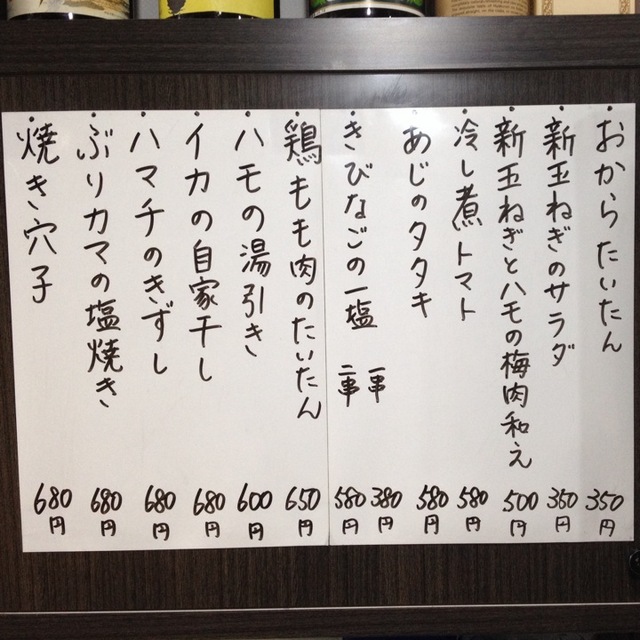 おからたいたん 350円
新玉ねぎのサラダ 350円
新玉ねぎとハモの梅肉和え 500円
冷し煮トマト 580円
あじのタタキ 580円
きびなごの一塩 一串 380円
二串 580円
鶏もも肉のたいたん 650円
ハモの湯引き 600円
イカの自家干し 680円
ハマチのきずし 680円
ぶりカマの塩焼き 680円
焼き穴子 680円